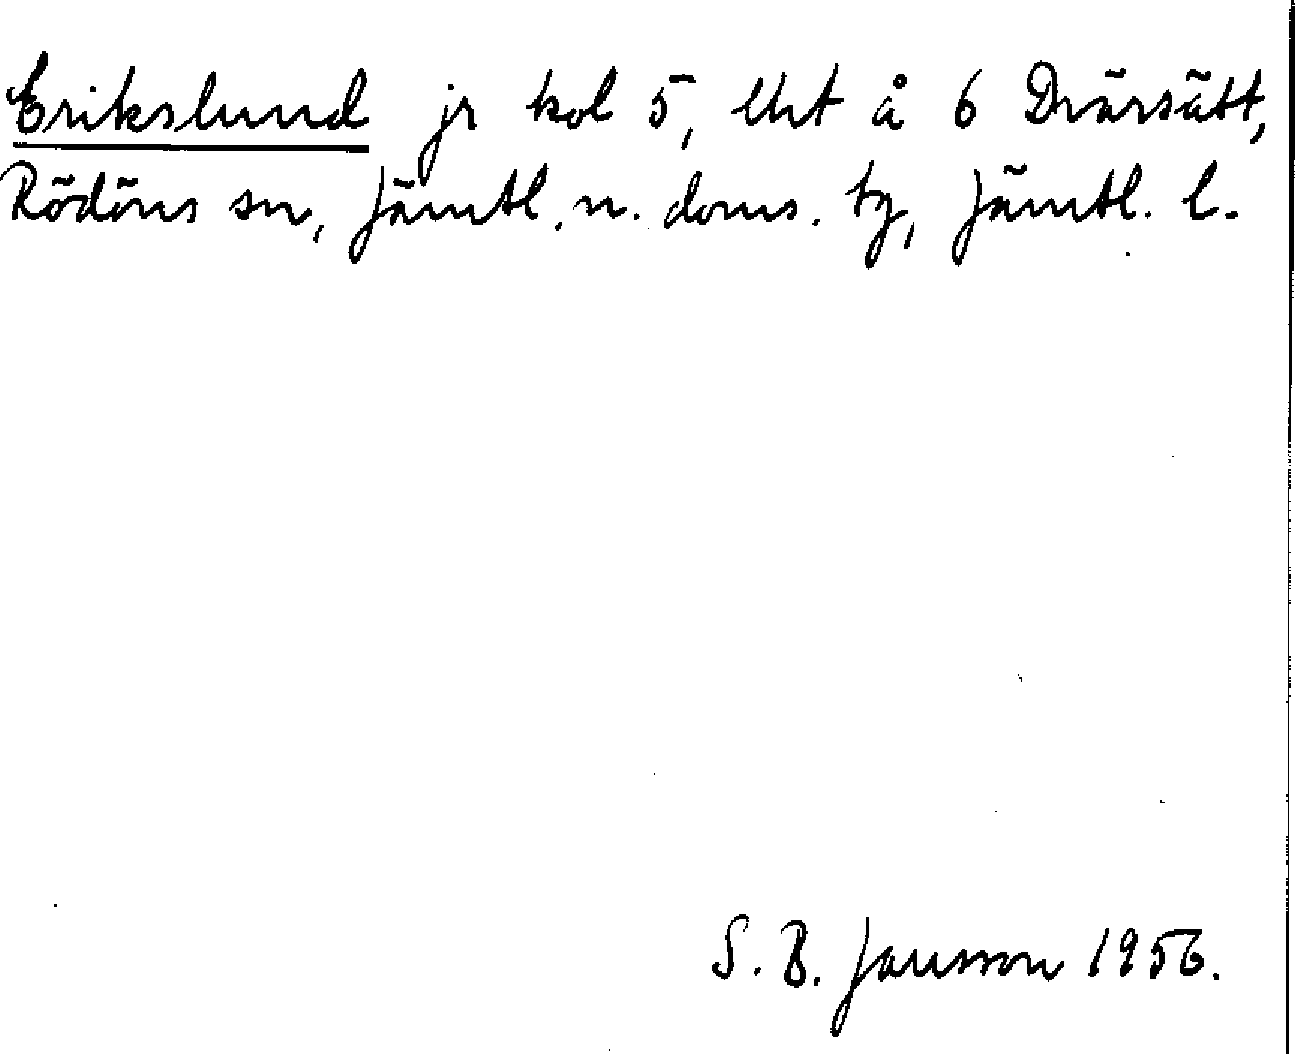 Erikslund jr kol 5, lht å 6 Dvärsätt,
Rödöns sn, Jämtl. n. doms. tg, Jämtl. l.
S. B. Jansson 1956.